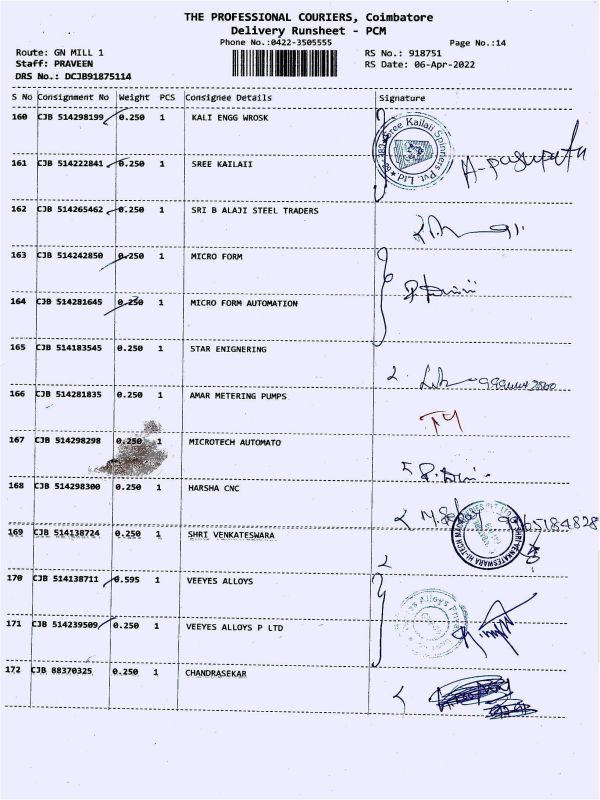 THE PROFESSIONAL COURIERS, Coimbatore
Delivery Runsheet - PCM
Phone No.:0422-3505555 Page No.:14
Route: GN MILL 1 RS No.: 918751
Staff: PRAVEEN RS Date: 06-Apr-2022
DRS No.: DCJB91875114
S No Consignment No Weight PCS Consignee Details Signature
160 CJB 514298199 0.250 1 KALI ENGG WROSK
Sree Kailaii Spinners Pvt Ltd
161 CJB 514222841 0.250 1 SREE KAILAII
162 CJB 514265462 0.250 1 SRI B ALAJI STEEL TRADERS
163 CJB 514242850 0.250 1 MICRO FORM
164 CJB 514281645 0.250 1 MICRO FORM AUTOMATION
165 CJB 514183545 0.250 1 STAR ENIGNERING
166 CJB 514281835 0.250 1 AMAR METERING PUMPS
167 CJB 514298298 0.250 1 MICROTECH AUTOMATO
168 CJB 514298300 0.250 1 HARSHA CNC
169 CJB 514138724 0.250 1 SHRI VENKATESWARA
170 CJB 514138711 0.595 1 VEEYES ALLOYS
171 CJB 514239509 0.250 1 VEEYES ALLOYS P LTD
172 CJB 88370325 0.250 1 CHANDRASEKAR